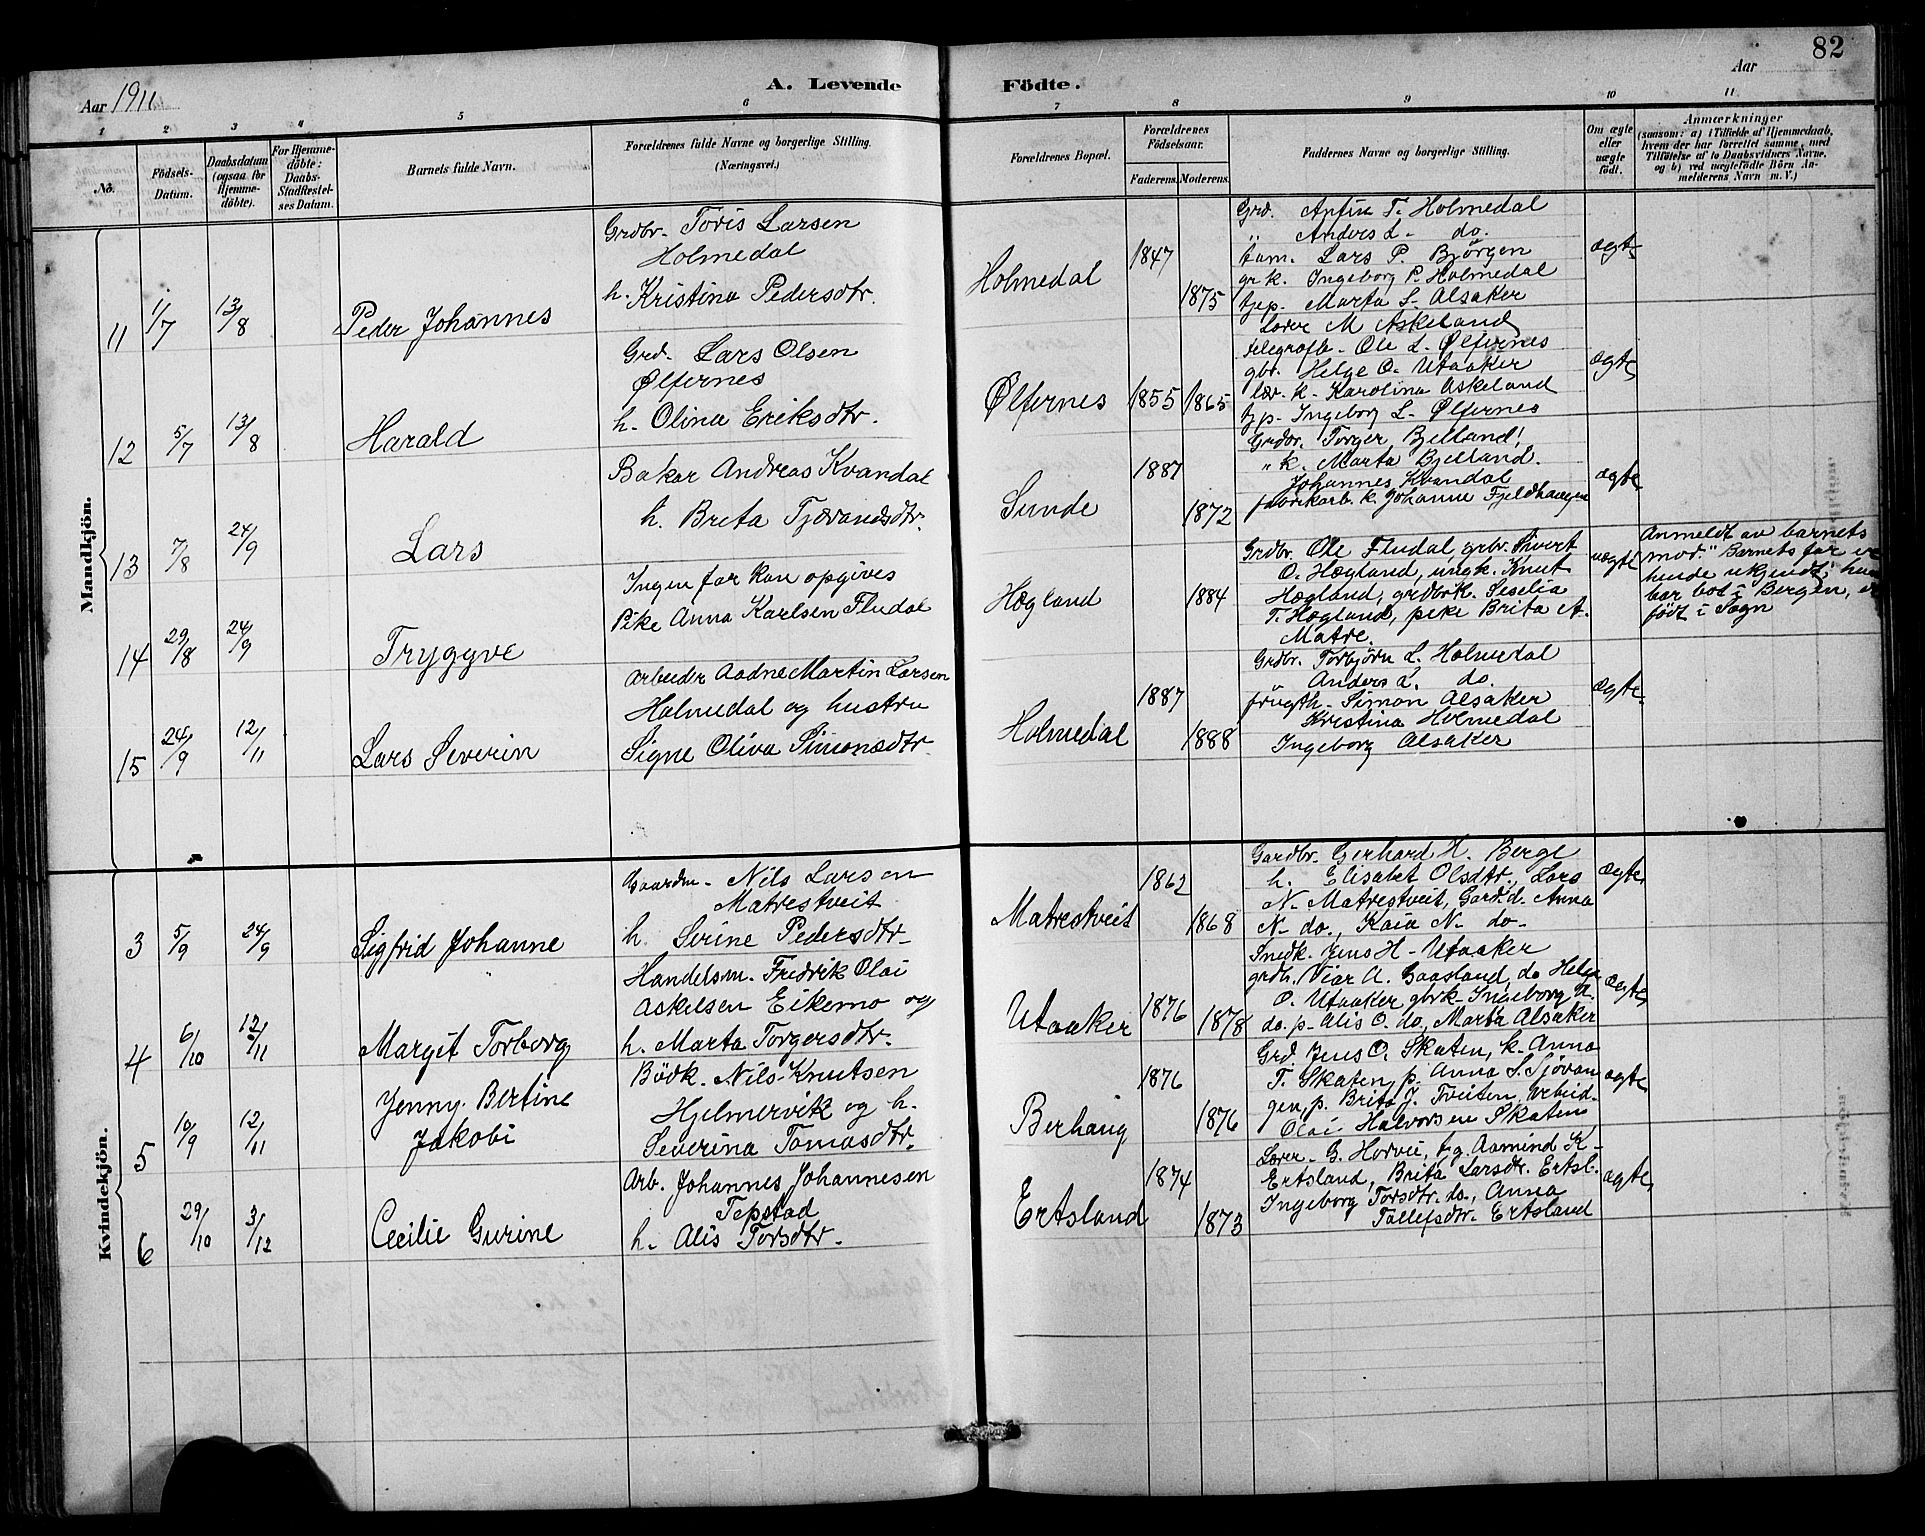 82
Aar 1911
A. Levende Födte.
Aar
1 2 3 4 5 6 7 8 9 10 11
No.
Födsels-
Datum.
Daabsdatum
(ogsaa for
Hjemme-
döbte).
For Hjemme-
döbte:
Daabs-
Stadfæstel-
ses Datum.
Barnets fulde Navn.
Forældrenes fulde Navne og borgerlige Stilling.
(Næringsvei.)
Forældrenes Bopæl.
Forældrenes
Födselsaar.
Faderens. Moderens.
Faddernes Navne og borgerlige Stilling.
Om ægte
eller
uægte
födt.
Anmærkninger
(saasom: a) i Tilfælde af Hjemmedaab,
hvem der har forrettet samme, med
Tilföielse af to Daabsvidners Navne,
og b) ved uægtefödte Börn An-
melderens Navn m. V.)
Mandkjön.
11
1/7
13/8
Peder Johannes
Grdbr. Toris Larsen
Holmedal
h. Kristina Pedersdtr.
Holmedal
1847
1875
Grd. Anfin T. Holmedal
" Anders L. do.
Lars P. Bjørgen
gr k. Ingeborg P. Holmedal
tjep. Marta S. Alsaker
ægte
12
5/7
13/8
Harald
Grd. Lars Olsen
Ølfernes
h. Olina Eriksdtr.
Ølfernes
1855
1865
Lærer M Askeland
telegrafb. Ole L. Ølfernes
gbr. Helge O. Utaaker
lær. k. Karolina Askeland
tjp. Ingeborg L. Ølfernes
ægte
13
7/8
24/9
Lars
Baker Andreas Kvandal
h. Brita Tjærandsdtr.
Sunde
1887
1872
Grdbr. Torger Bjelland,
" k. Marta Bjelland.
Johannes Kvandal
fabrikarb. k. Johanne Fjeldhaugen
ægte
14
29/8
24/9
Trygyve
Ingen far kan opgives
Pike Anna Karlsen Fludal
Høgland
1884
Grdbr. Ole Fludal, grbr. Sivert
O. Høgland, ungk. Knut
Høgland, grdbrk. Seselia
T. Høgland, pike Brita A.
Matre.
uægte
Anmeldt av barnets
mor. "Barnets far er
hende ukjendt; hun
har bot i Bergen, er
født i Sogn
15
24/9
12/11
Lars Severin
Arbeider Aadne Martin Larsen
Holmedal og hustru
Signe Oliva Simonsdtr.
Holmedal
1887
1888
Grdbr. Torbjørn L. Holmedal
" Anders L. do.
Simon Alsaker
Kristina Holmedal
Ingeborg Alsaker
ægte
Kvindekjön.
3
5/9
24/9
Sigfrid Johanne
Gaardm. Nils Larsen
Matrestveit
h. Serine Pedersdtr.
Matrestveit
1862
1868
Gardbr. Gerhard H. Berge
h. Elisabet Olsdtr., Lars
N. Matrestveit, Gard.d. Anna
N. do., Kaia N. do.
ægte
4
6/10
12/11
Margit Torborg
Handelsm. Fredrik Olai
Askelsen Eikemo og
h. Marta Torgersdtr.
Utaaker
1876
1878
Snedk. Jens H. Utaaker
grdb. Viar A. Gaasland, do Helge
O. Utaaker gbrk. Ingeborg H.
do. p. Alis O. do, Marta Alsaker
ægte
5
10/9
12/11
Jenny Bertine
Jakobi
Bödk. Nils Knutsen
Hjelmervik og h.
Severina Tomasdtr.
Berhaug
1876
1876
Grd. Jens O. Skaten, k. Anna
T. Skaten, p. Anna S. Sjovan-
gen, p. Brita J. Tveiten, arbeid.
Olai Halvorsen Skaten
ægte
6
29/10
3/12
Cecilie Gurine
Arb. Johannes Johannesen
Tepstad
h. Alis Torsdtr.
Ertsland
1874
1873
Lærer G. Horvei, Aamund K.
Ertsland, Brita Larsdtr. Ertsl.
Ingeborg Torsdtr. do., Anna
Tollefsdtr. Ertsland
ægte